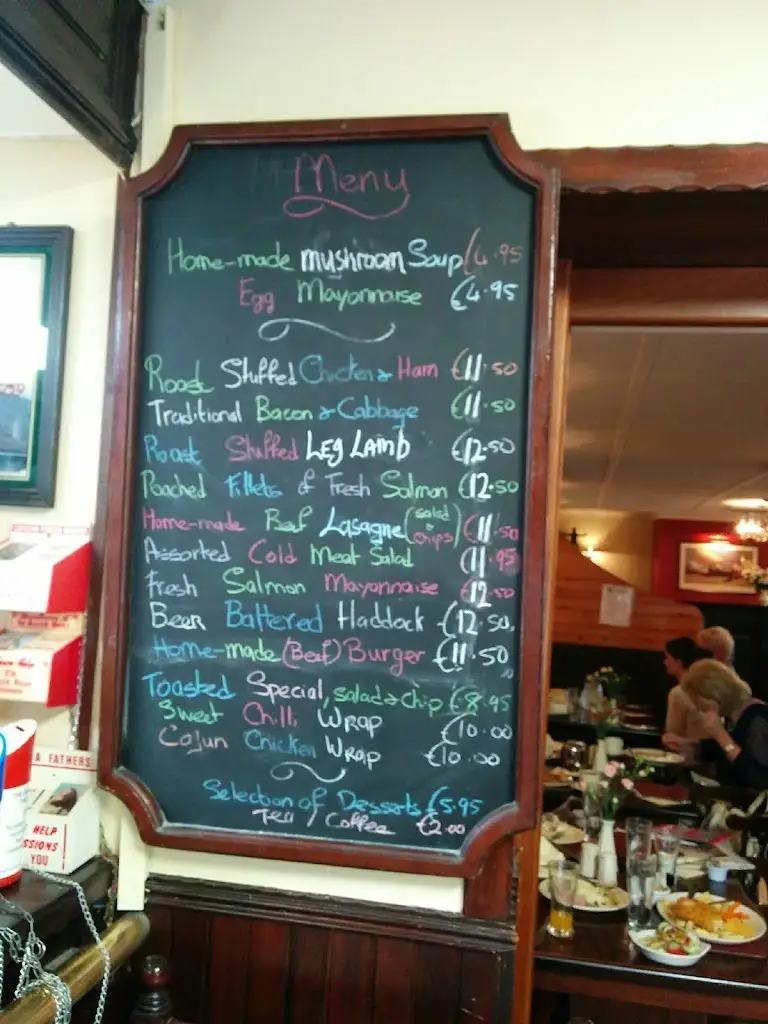 Menu
Home-made mushroom Soup €4.95
Egg Mayonnaise €4.95
Roast Stuffed Chicken & Ham €11.50
Traditional Bacon & Cabbage €11.50
Roast Stuffed Leg Lamb €12.50
Poached Fillets of Fresh Salmon €12.50
Home-made Beef Lasagne (salad & chips) €11.50
Assorted Cold Meat Salad €11.95
Fresh Salmon Mayonnaise €12.50
Beer Battered Haddock €12.50
Home-made (Beef) Burger €11.50
Toasted Special, salad & Chip €8.95
Sweet Chilli Wrap €10.00
Cajun Chicken Wrap €10.00
Selection of Desserts €5.95
Tea / Coffee €2.00
A FATHERS
HELP
SSIONS
YOU